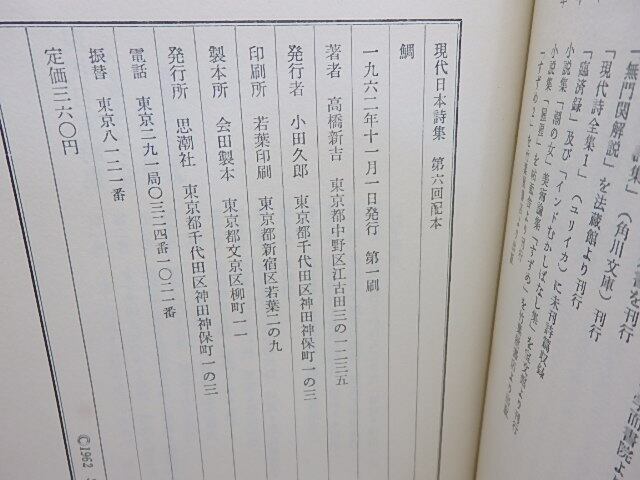 「無門関解説」
詩集」(角川文庫)刊行
「現代詩全集1」(ユリイカ)に未刊詩篇収録
「臨済録」を法蔵館より刊行
小説集「潮の女」及び「インドむかしばなし集」
現代日本詩集 第六回配本
鯛
一九六二年十一月一日発行 第一刷
著者 高橋新吉 東京都中野区江古田三の一二三五
発行者 小田久郎 東京都千代田区神田神保町一の三
印刷所 若葉印刷 東京都新宿区若葉二の九
製本所 会田製本 東京都文京区柳町一一
発行所 思潮社 東京都千代田区神田神保町一の三
電話 東京二九一局〇三二四番一〇二一番
振替 東京八一二一番
定価三六〇円
©1962